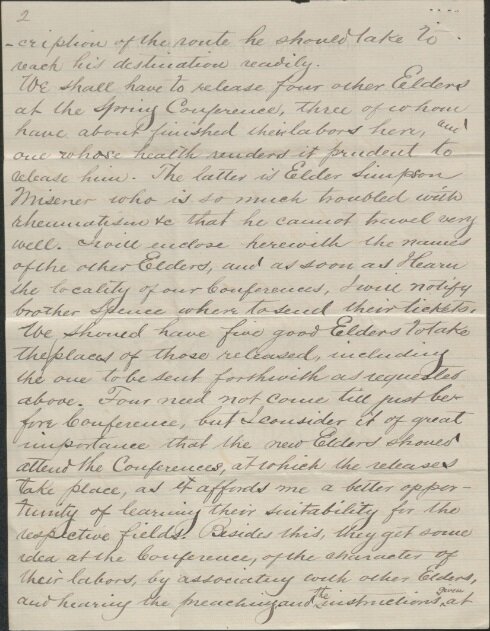 2
-cription of the route he should take to
reach his destination readily.
We shall have to release four other Elders
at the Spring Conference, three of whom
have about finished their labors here, and
one whose health renders it prudent to
release him. The latter is Elder Simpson
Misener who is so much troubled with
rheumatism &c that he cannot travel very
well. I will enclose herewith the names
of the other Elders, and as soon as I learn
the locality of our Conferences, I will notify
brother Spence where to send their tickets.
We should have five good Elders to take
the places of those released, including
the one to be sent forthwith as requested
above. Four need not come till just be-
fore Conference, but I consider it of great
importance that the new Elders should
attend the Conferences, at which the releases
take place, as it affords me a better oppor-
tunity of learning their suitability for the
respective fields. Besides this, they get some
idea at the Conference, of the character of
their labors, by associating with other Elders,
and hearing the preaching and the instructions given at